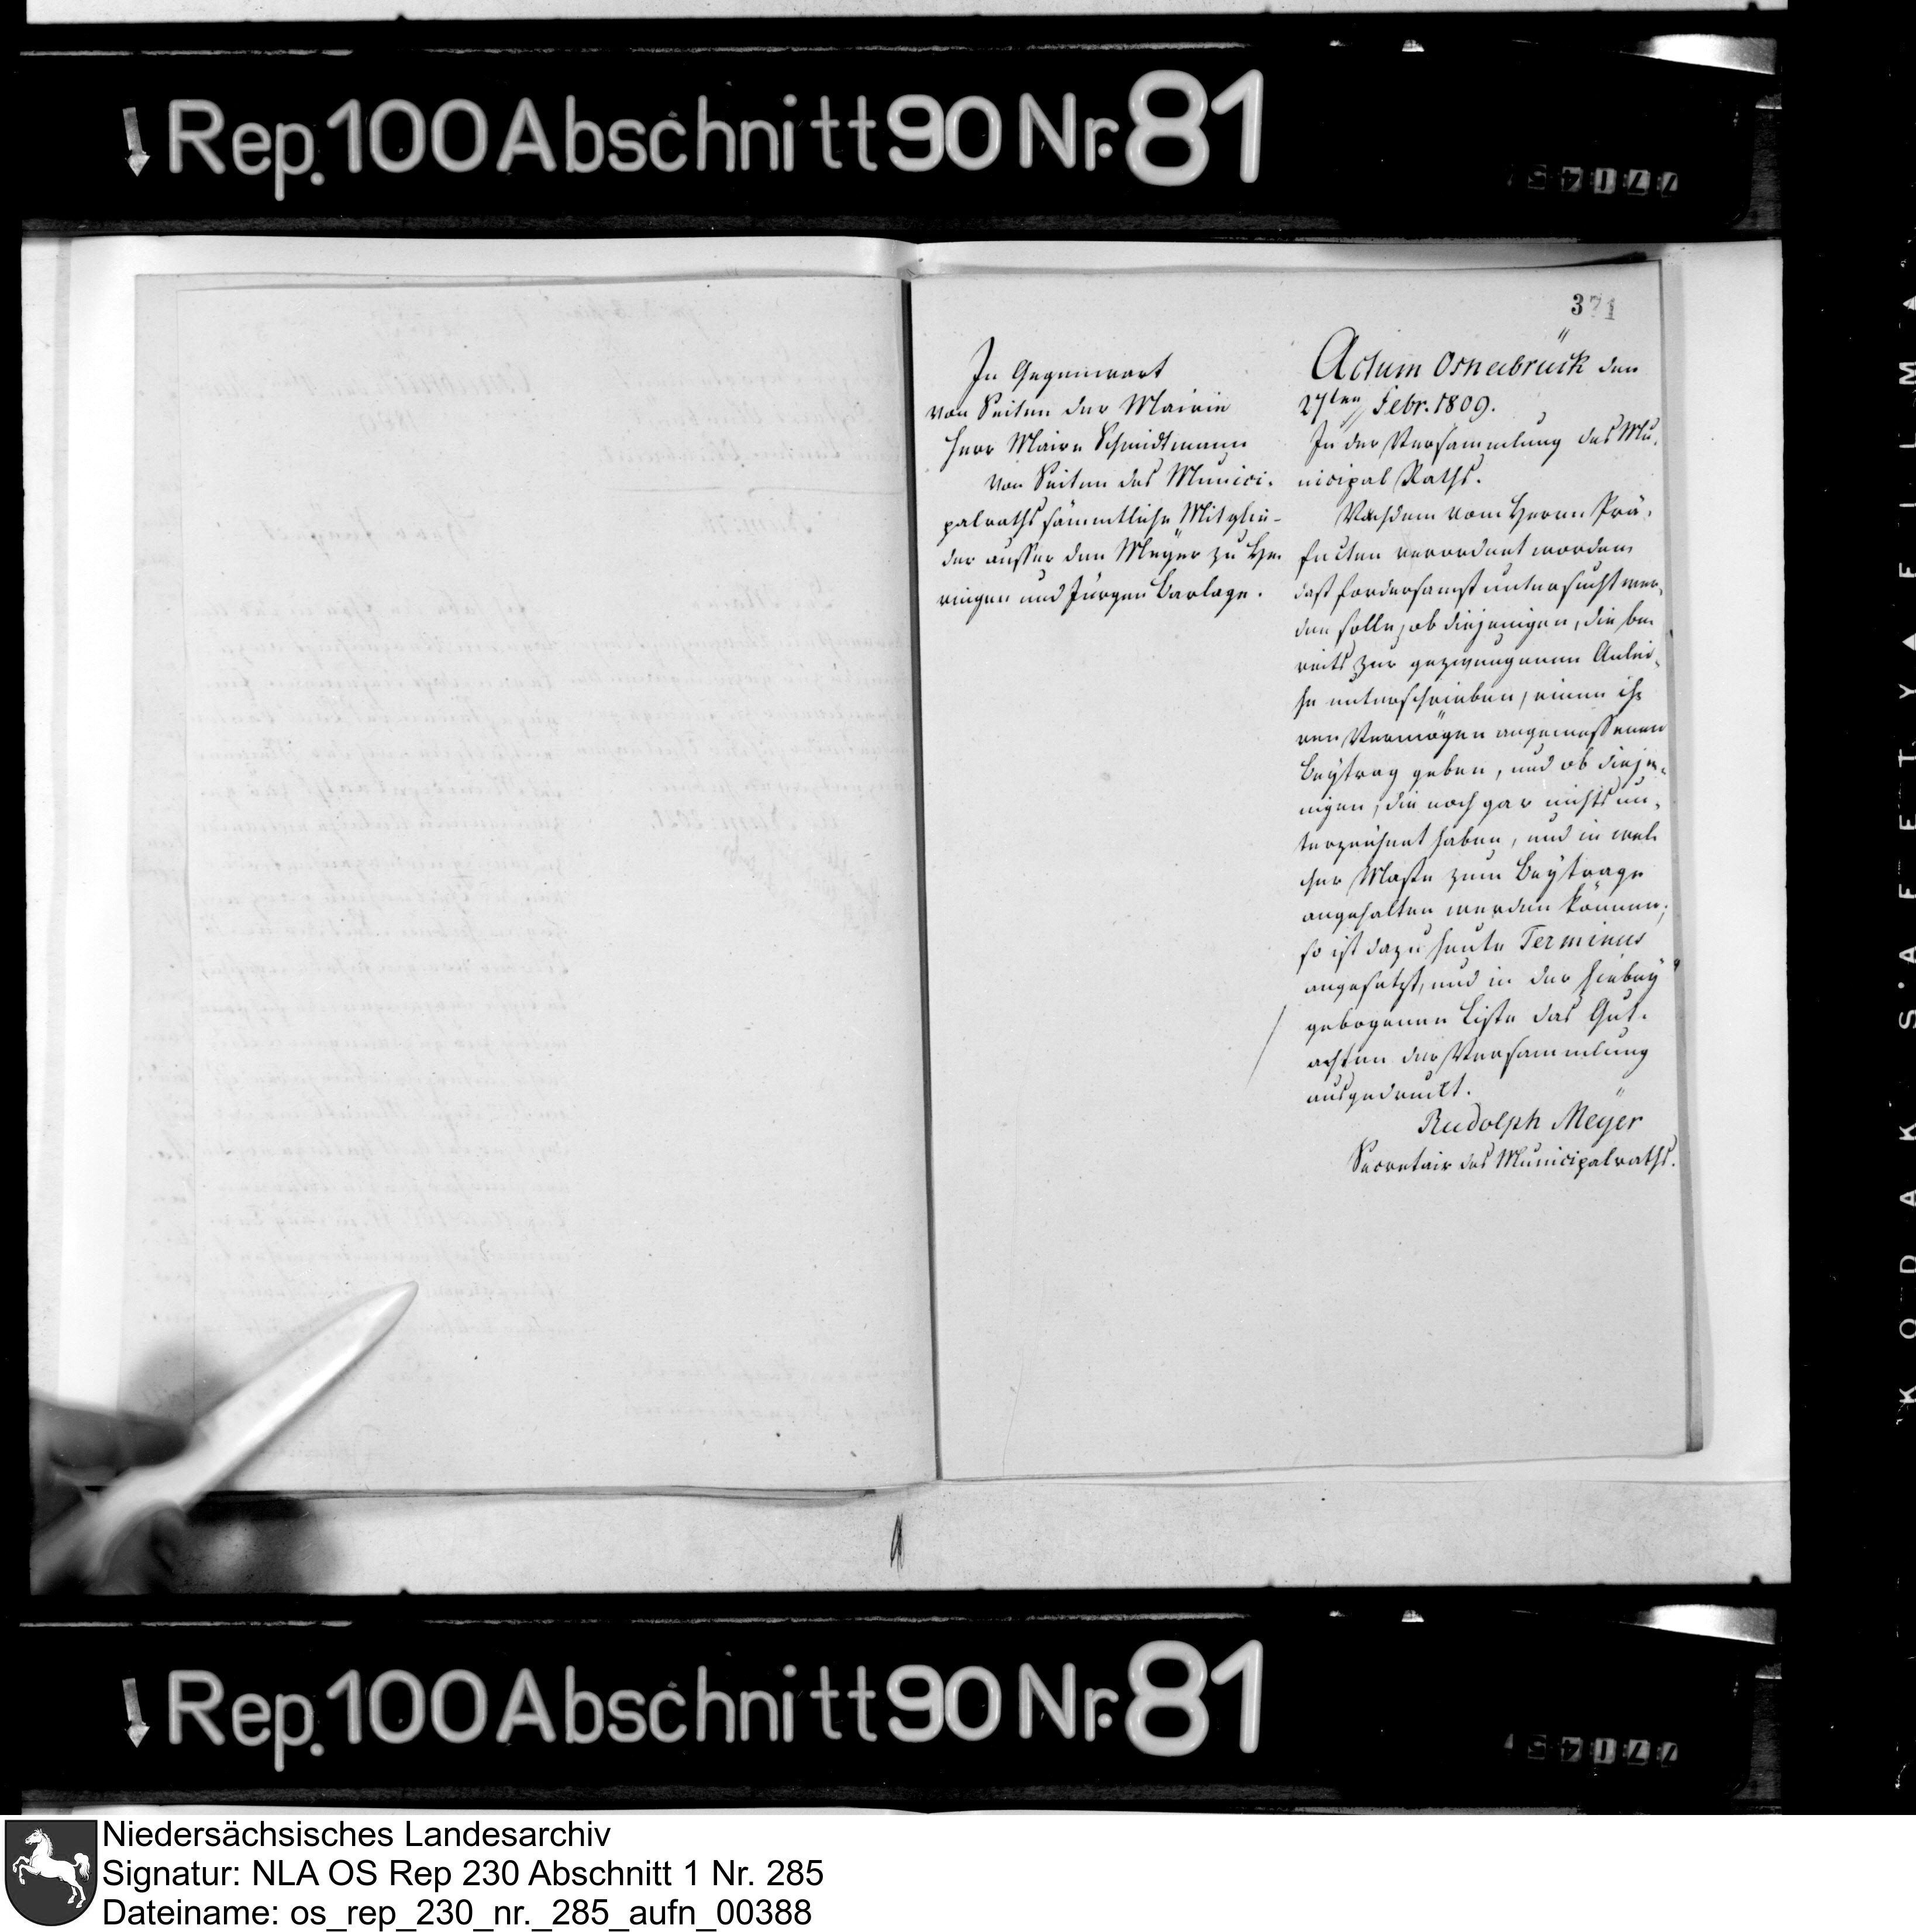 Rep. 100 Abschnitt 90 Nr. 81
371
In Gegenwart
von Seiten der Mairie
Herr Maire Schmidtmann
von Seiten des Munici-
palraths sämmtliche Mitglie-
der ausser den Meÿer zu He-
ringen und Jürgen Barlage.
Actum Osnabrück den
27ten Febr. 1809.
In der Versammlung des Mu-
nicipal Raths.
Nachdem vom Herrn Prä-
fecten verordnet worden,
daß fordersamst untersucht wer-
den solle, ob diejenigen, die be-
reits zur gezwungenen Anlei-
he unterschrieben, einen ih-
ren Vermögen angemessenen
Beÿtrag geben, und ob dieje-
nigen, die noch gar nichts un-
terzeichnet haben, und in wel-
cher Maße zum Beÿtrage
angehalten werden können;
so ist dazu heute Terminus
angesetzt, und in der hiebeÿ
gebogenen Liste das Gut-
achten der Versammlung
ausgedruckt.
Rudolph Meÿer
Secretair des Municipalraths.
KODAK SAFETY FILM
Rep. 100 Abschnitt 90 Nr. 81
Niedersächsisches Landesarchiv
Signatur: NLA OS Rep 230 Abschnitt 1 Nr. 285
Dateiname: os_rep_230_nr._285_aufn_00388